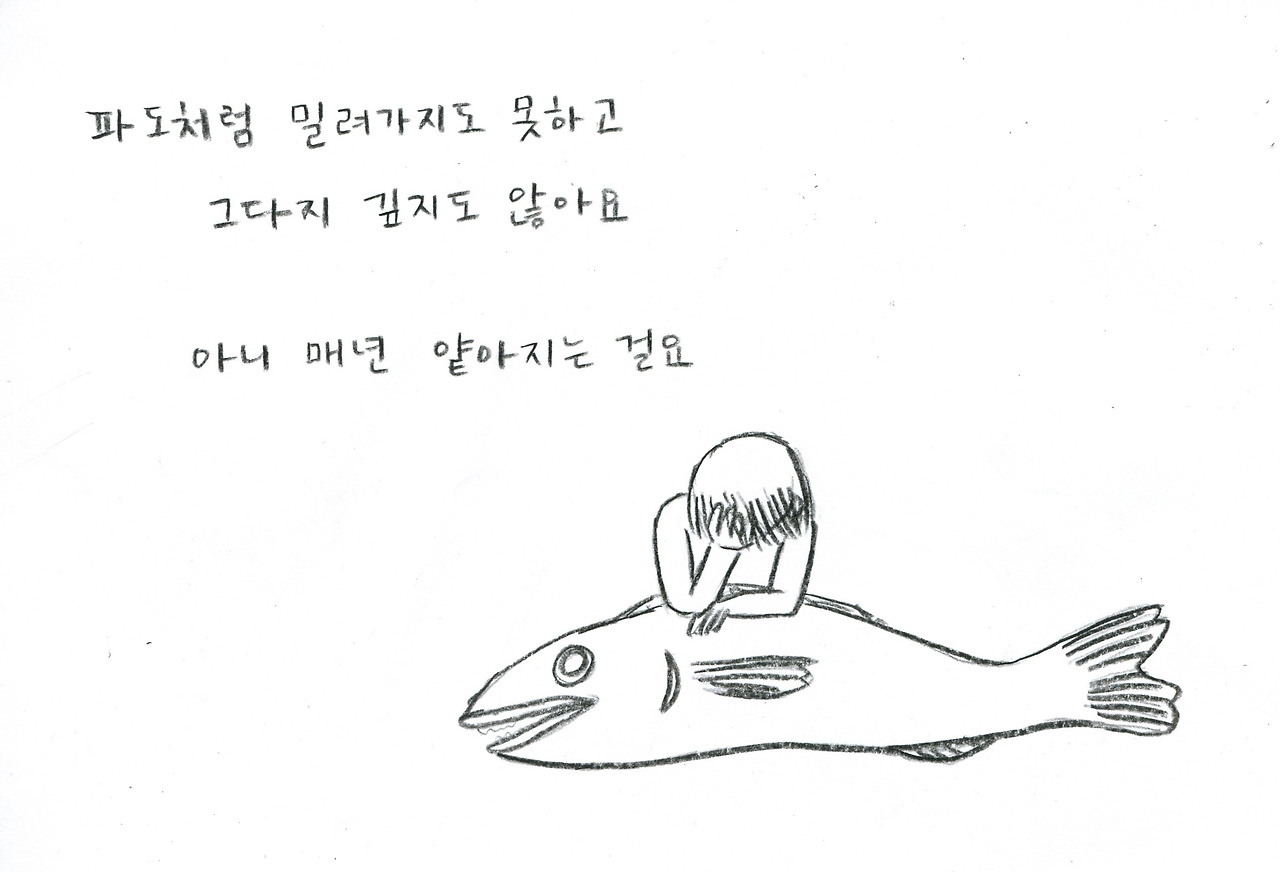 파도처럼 밀려가지도 못하고
그다지 깊지도 않아요
아니 매년 얕아지는 걸요